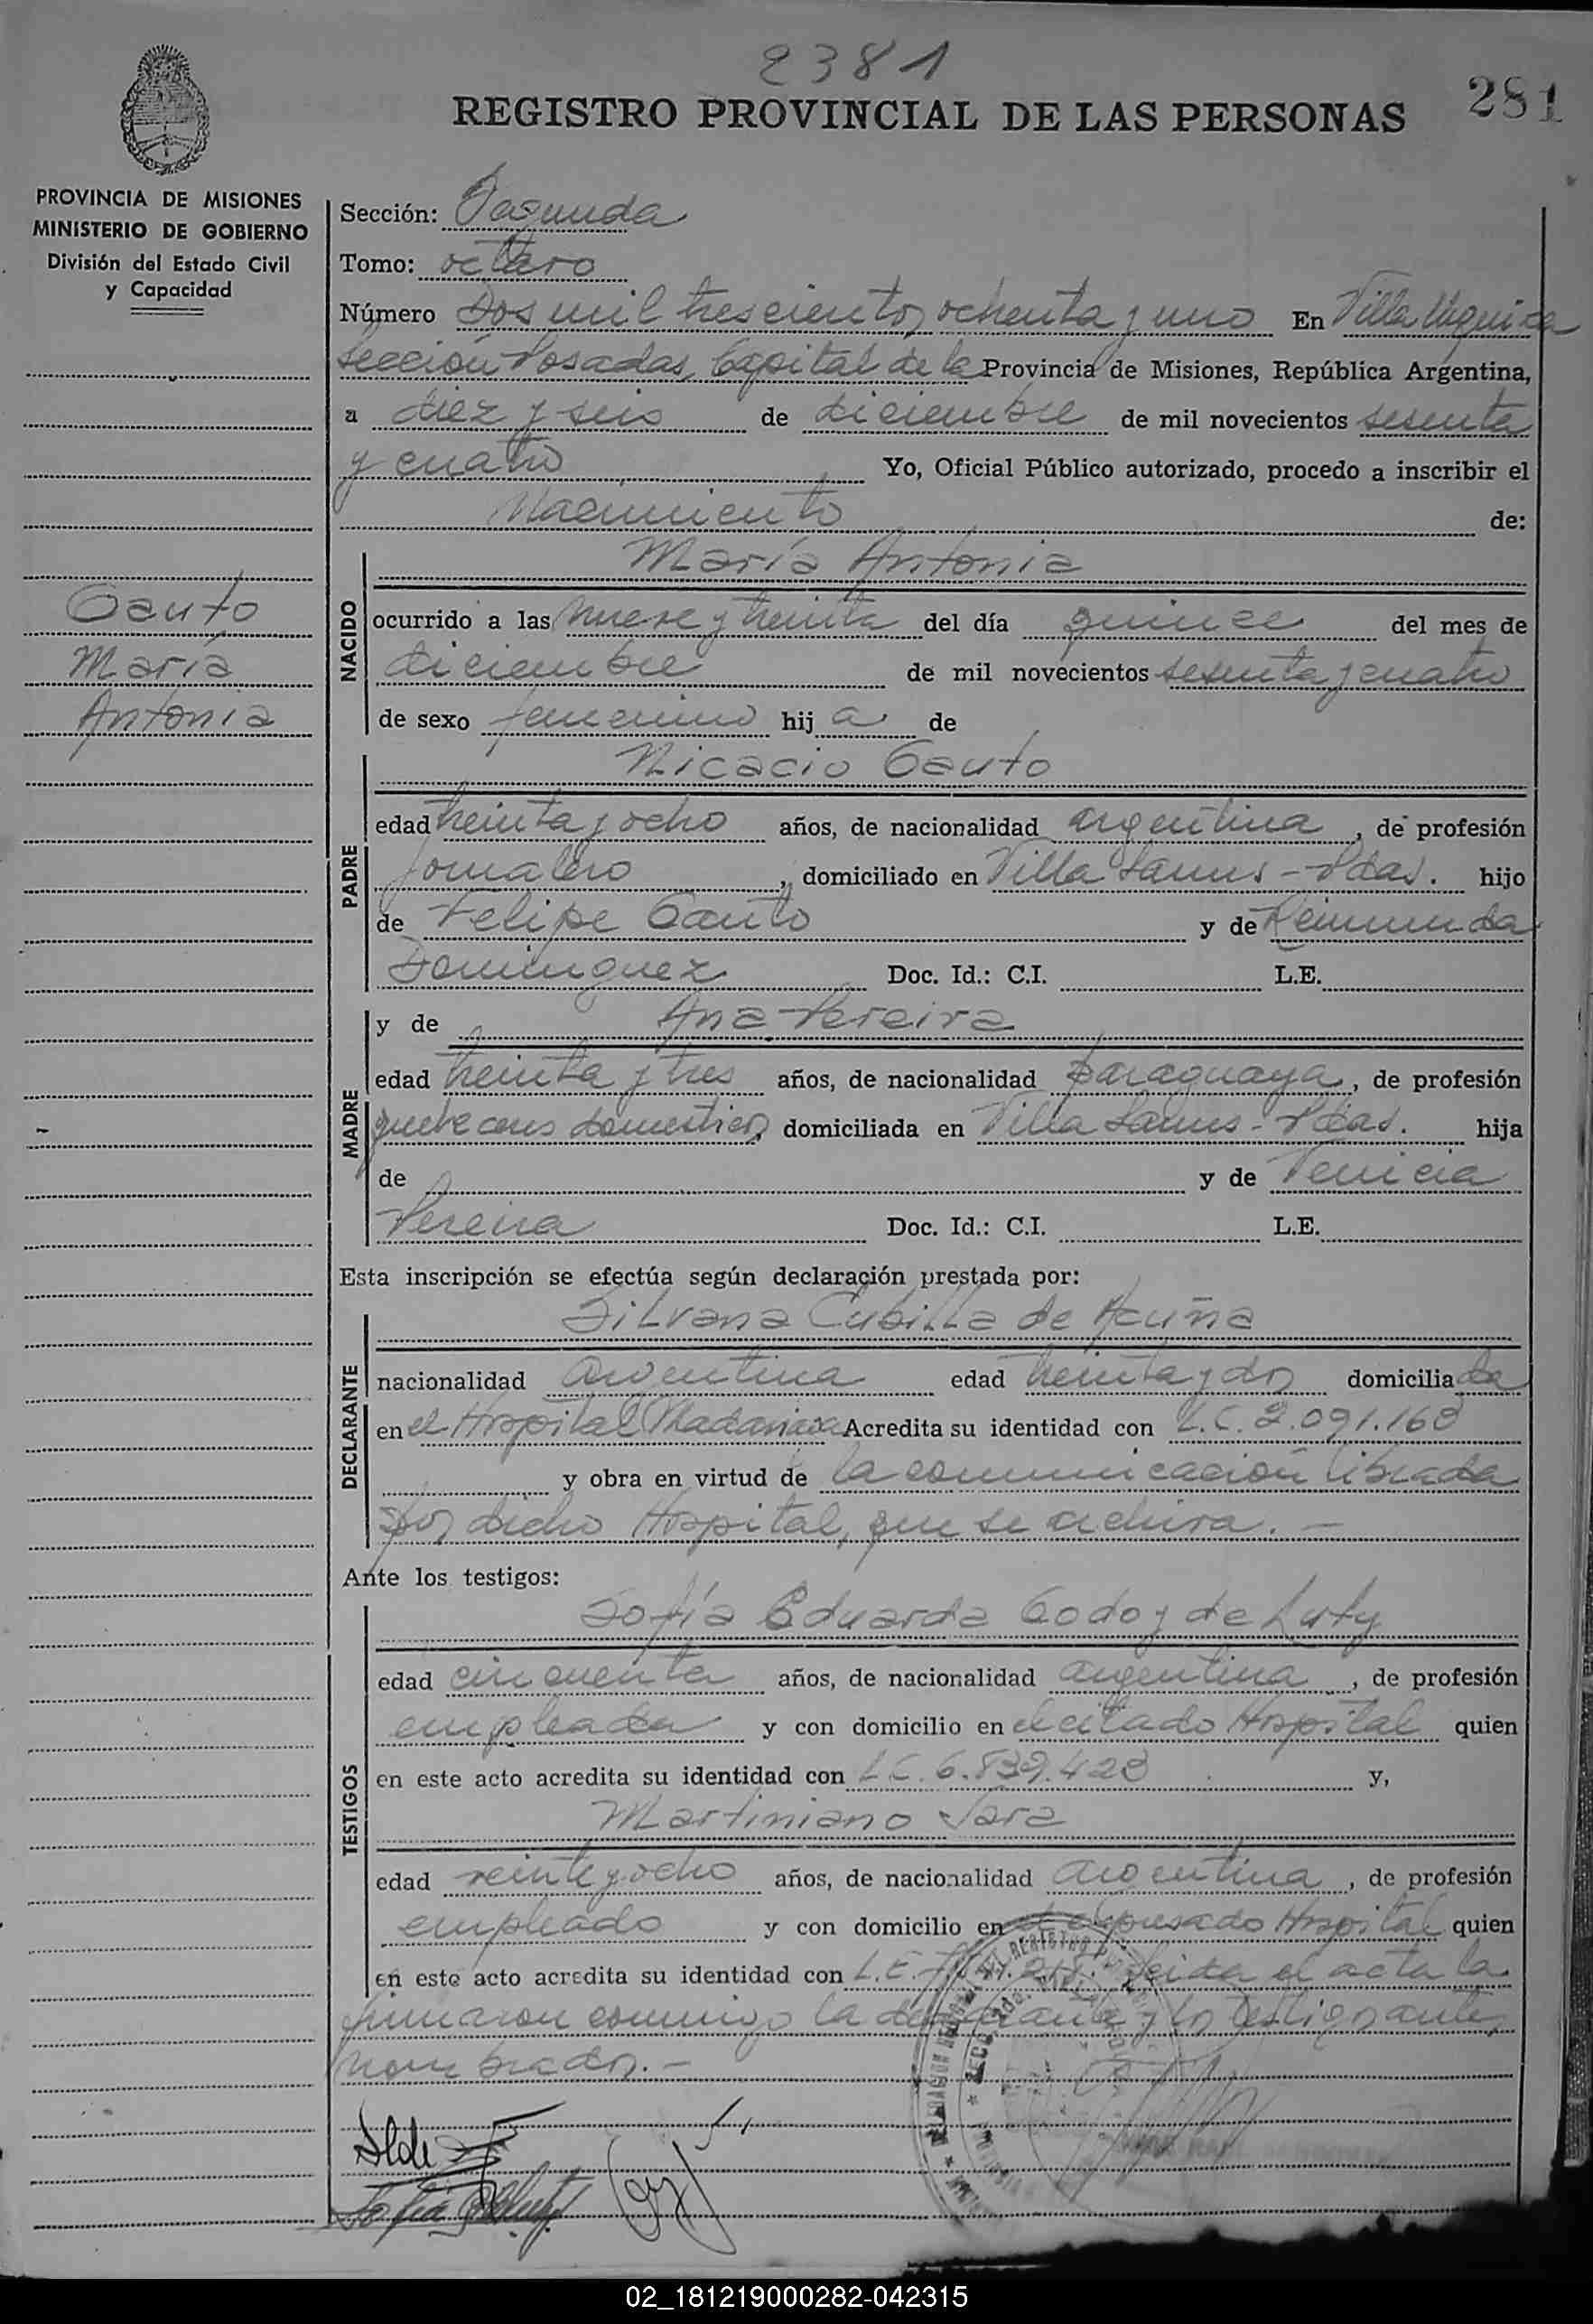 2381
REGISTRO PROVINCIAL DE LAS PERSONAS
281
PROVINCIA DE MISIONES
MINISTERIO DE GOBIERNO
División del Estado Civil
y Capacidad
Gauto
María
Antonia
Sección: Segunda
Tomo: octavo
Número Dos mil trescientos ochenta y uno En Villa Urquiza
Sección Posadas, Capital de la Provincia de Misiones, República Argentina,
a diez y seis de diciembre de mil novecientos sesenta
y cuatro Yo, Oficial Público autorizado, procedo a inscribir el
Nacimiento de:
María Antonia
NACIDO
ocurrido a las nueve y treinta del día quince del mes de
diciembre de mil novecientos sesenta y cuatro
de sexo femenino hij a de
Nicacio Gauto
PADRE
edad treinta y ocho años, de nacionalidad argentina, de profesión
Jornalero, domiciliado en Villa Lanus - Pdas. hijo
de Felipe Gauto y de Reimunda
Dominguez Doc. Id.: C.I. L.E.
MADRE
y de Ana Pereira
edad treinta y tres años, de nacionalidad paraguaya, de profesión
domesticos, domiciliada en Villa Lanus - Pdas. hija
de y de Venicia
Pereira Doc. Id.: C.I. L.E.
Esta inscripción se efectúa según declaración prestada por:
Silvana Cubilla de Acuña
DECLARANTE
nacionalidad argentina edad treinta y dos domiciliada
en el Hospital Madariaga Acredita su identidad con L.C. 2.091.168
y obra en virtud de la comunicación librada
por dicho Hospital, que se archiva. -
Ante los testigos:
Sofía Eduarda Godoy de Luty
TESTIGOS
edad cincuenta años, de nacionalidad argentina, de profesión
empleada y con domicilio en el citado Hospital quien
en este acto acredita su identidad con L.C. 6.839.428 y,
Martiniano Jara
edad veinte y ocho años, de nacionalidad argentina, de profesión
empleado y con domicilio en el expresado Hospital quien
en este acto acredita su identidad con L.E. Leida el acta la
firmaron conmigo la declarante y los testigos ante
nombrados. -
02_181219000282-042315